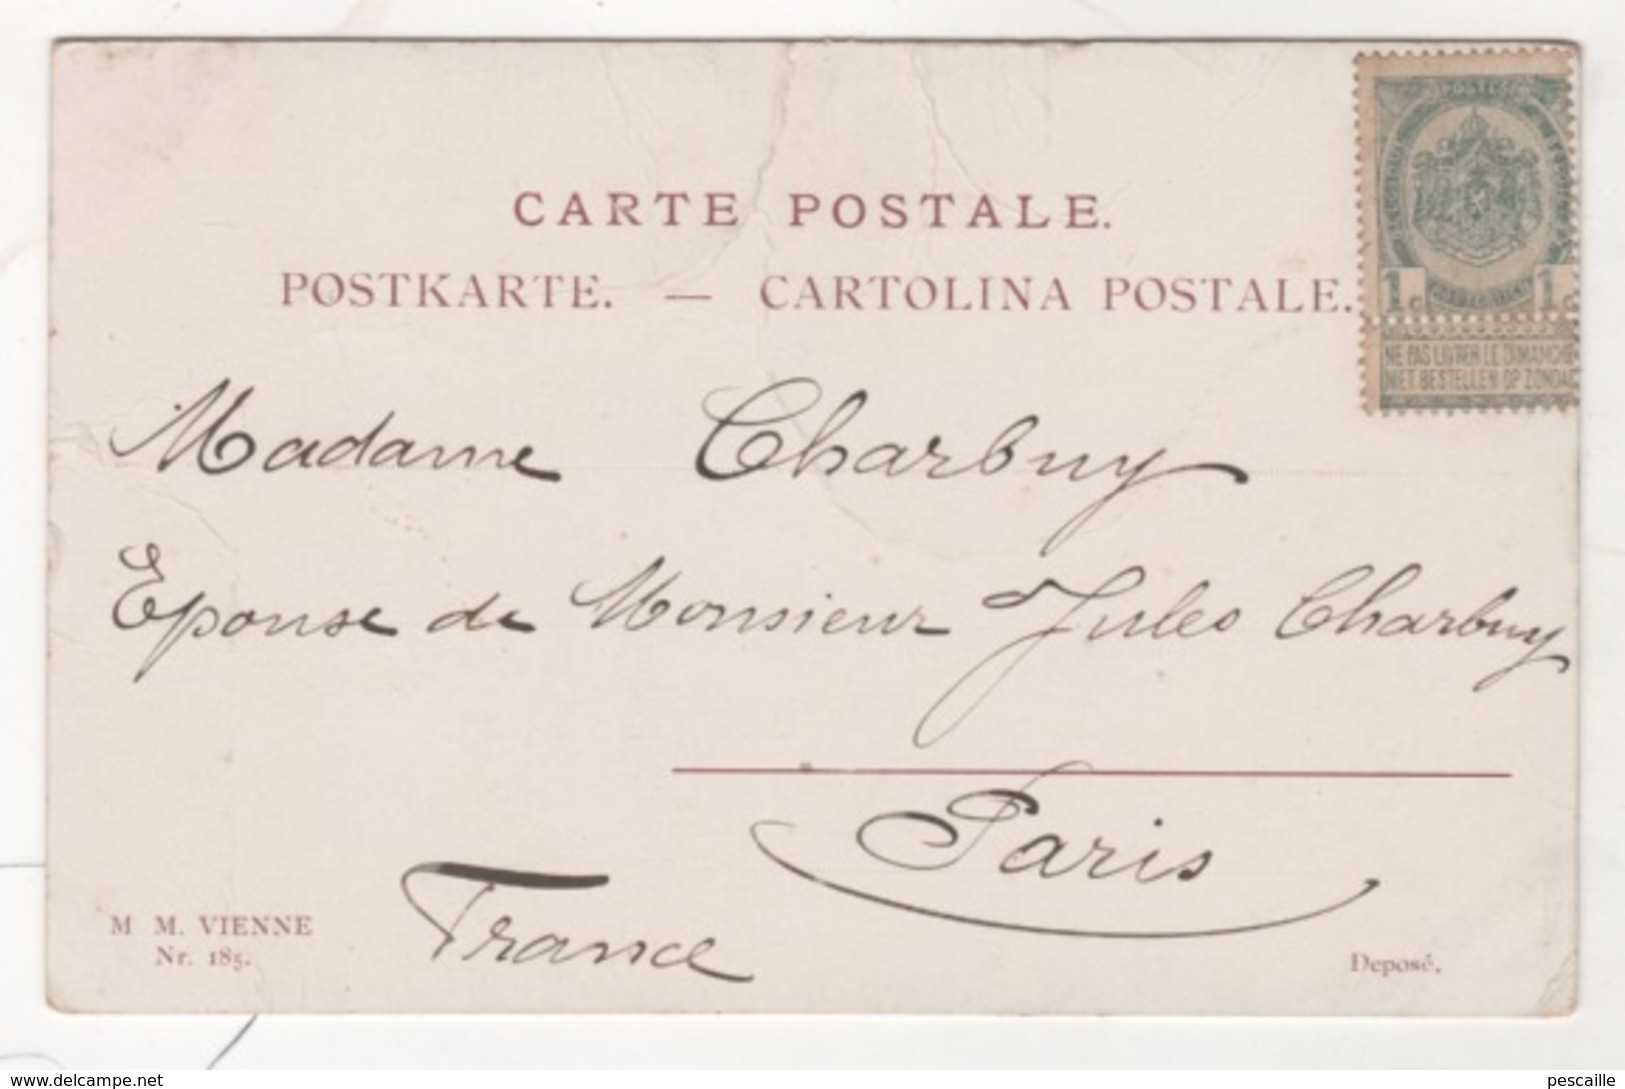 CARTE POSTALE.
POSTKARTE. — CARTOLINA POSTALE.
POSTES
1c 1c
NE PAS LIVRER LE DIMANCHE
NIET BESTELLEN OP ZONDAG
Madame Charbuy
Epouse de Monsieur Jules Charbuy
Paris
France
M M. VIENNE
Nr. 185.
Deposé.
www.delcampe.net
pescaille